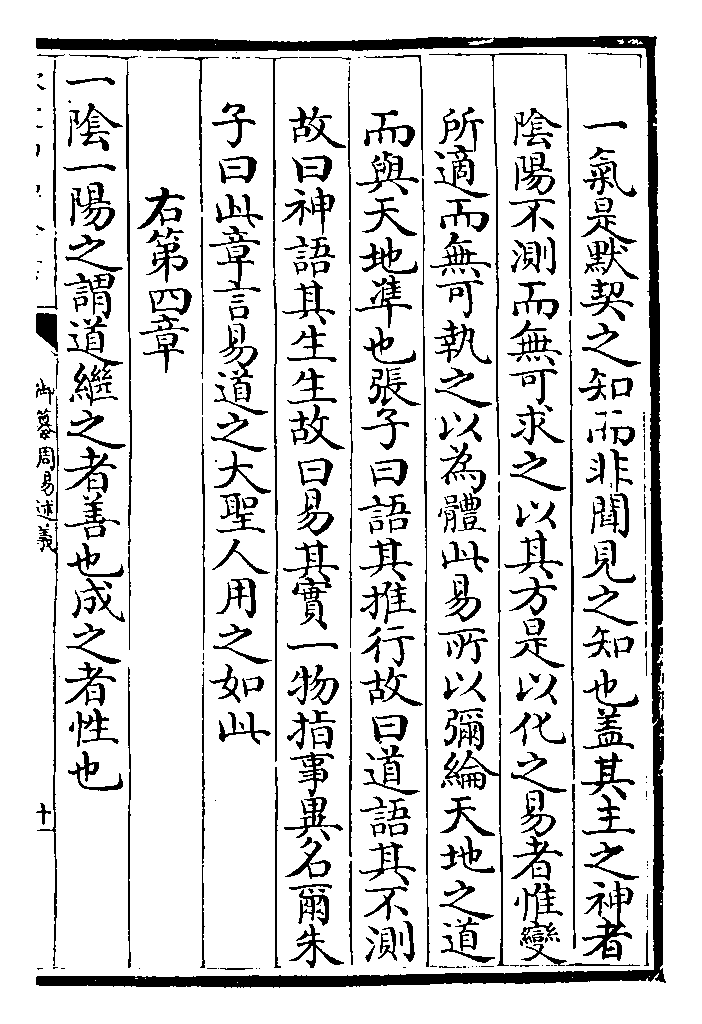 一氣是默契之知而非聞見之知也盖其主之神者
陰陽不測而無可求之以其方是以化之易者惟變
所適而無可執之以為體此易所以彌綸天地之道
而與天地準也張子曰語其推行故曰道語其不測
故曰神語其生生故曰易其實一物指事異名爾朱
子曰此章言易道之大聖人用之如此
右第四章
一陰一陽之謂道繼之者善也成之者性也
御纂周易述義
十一